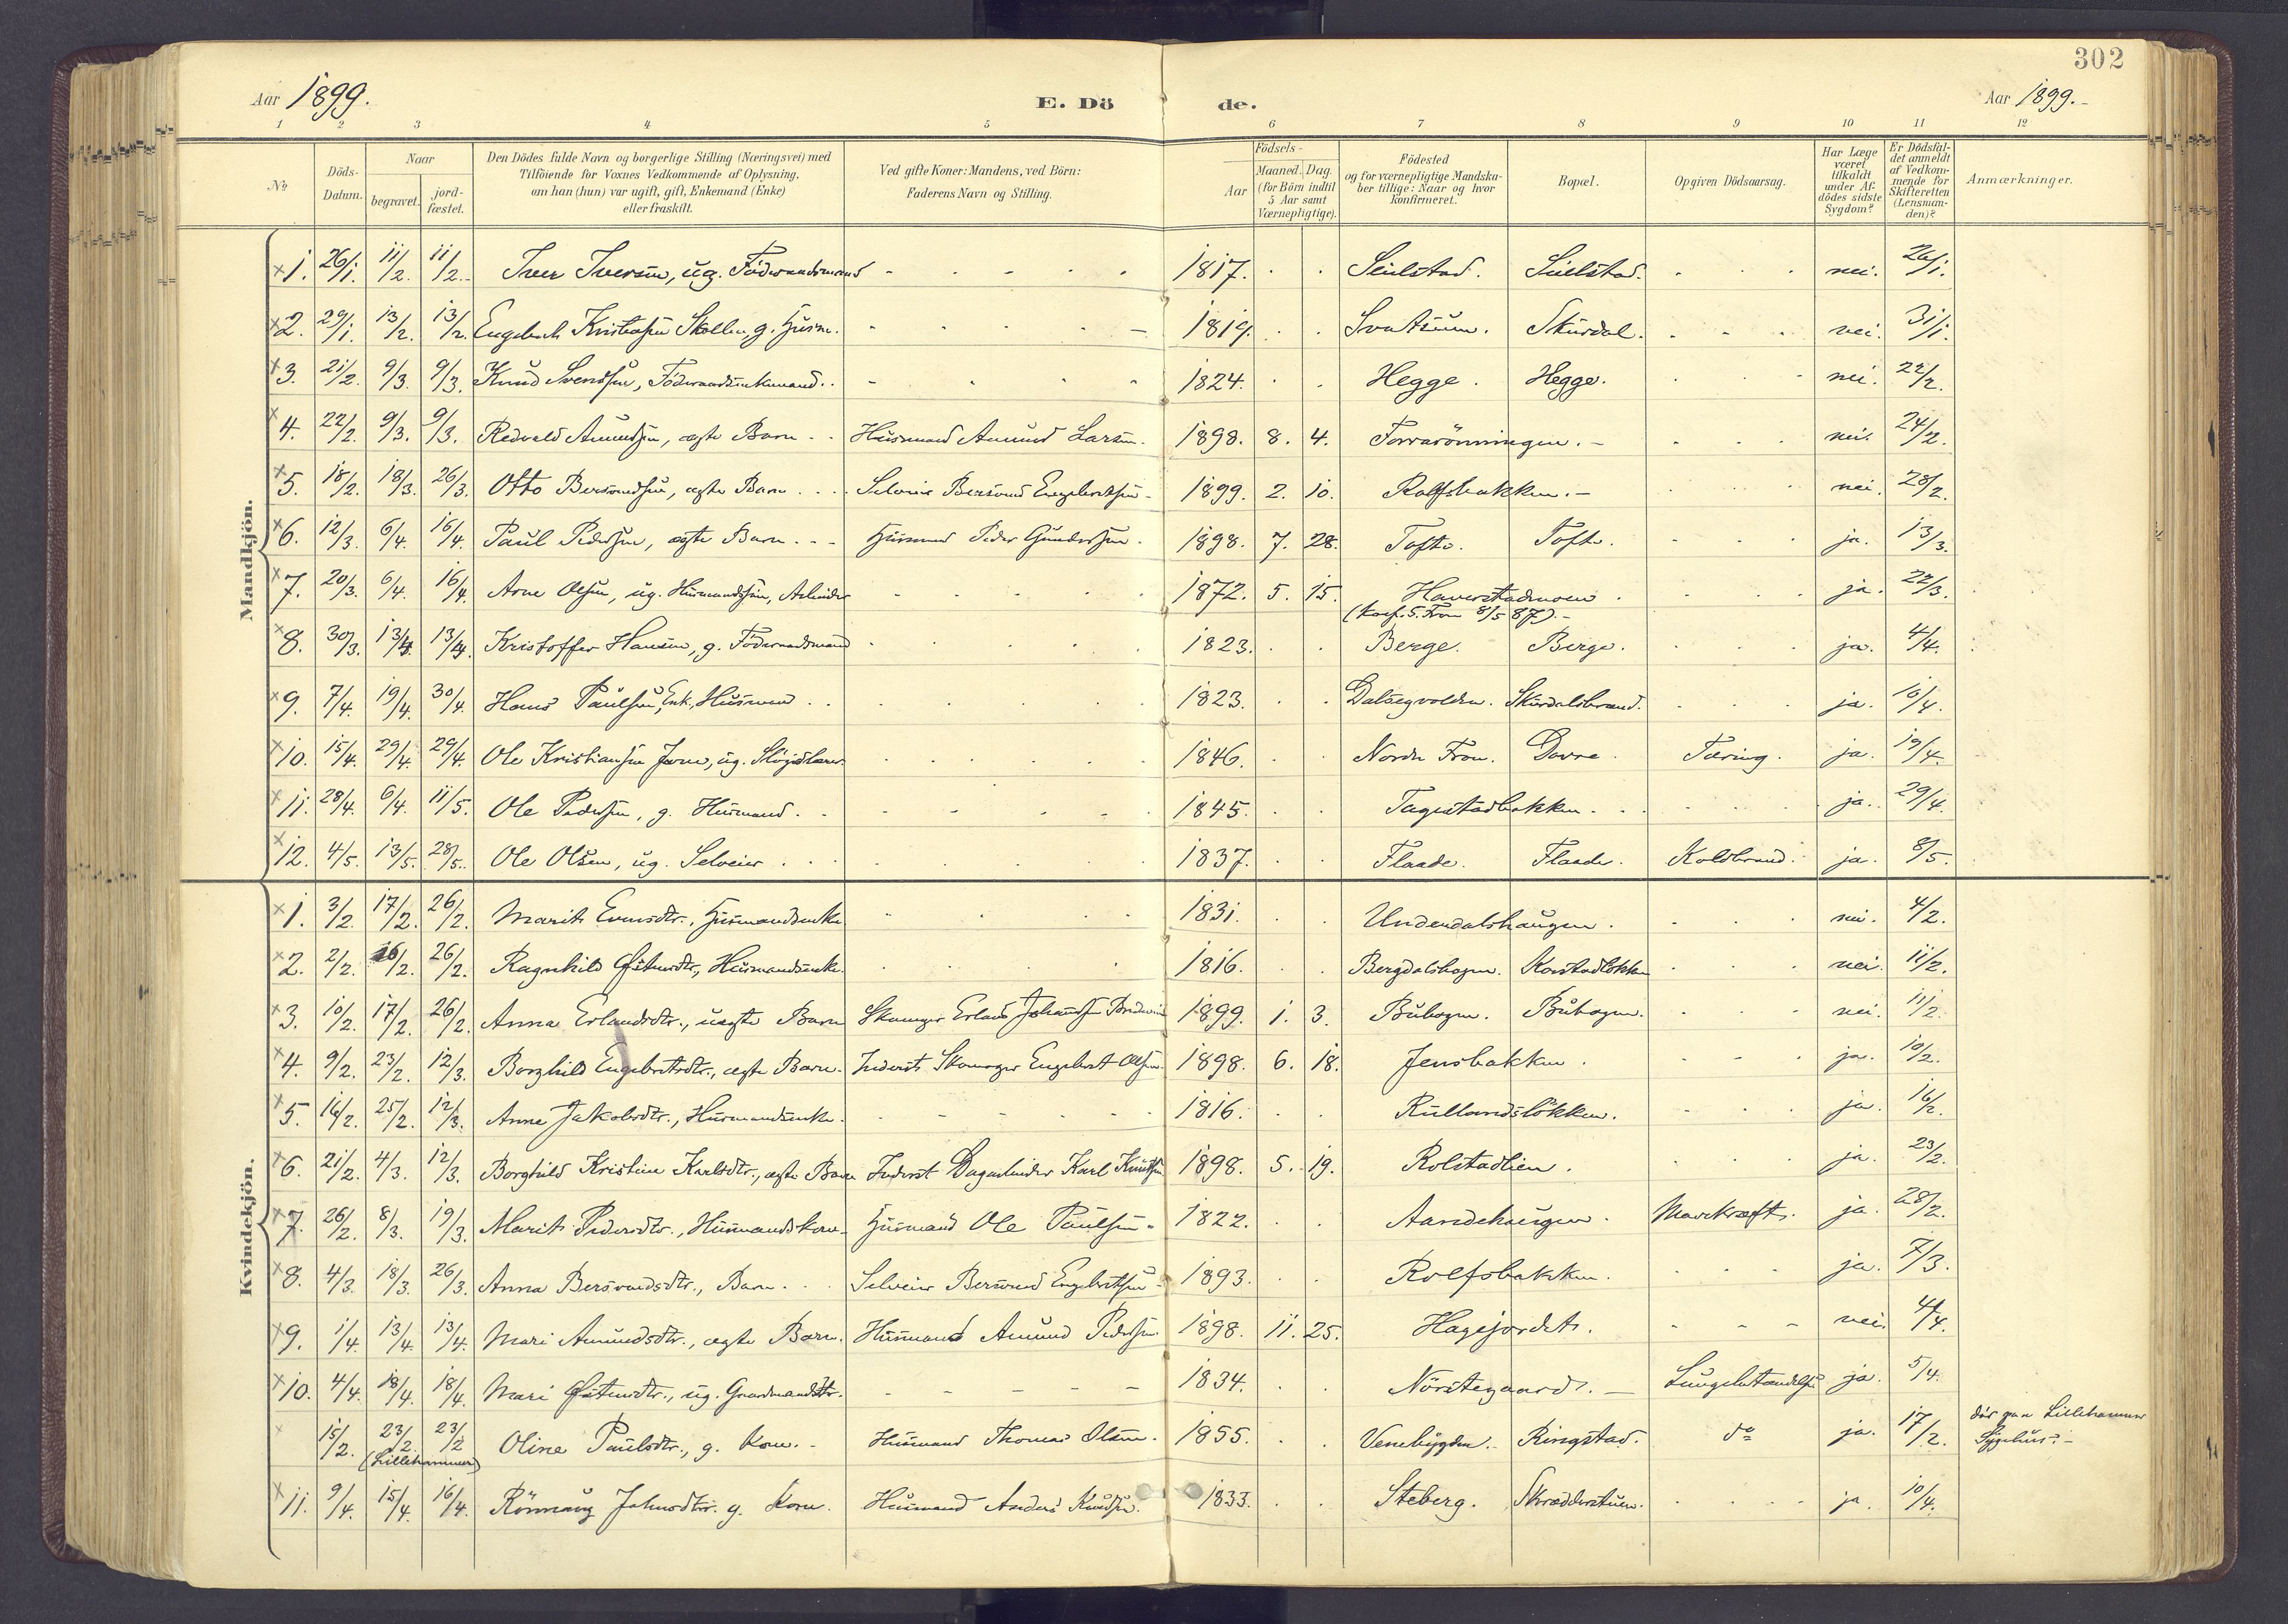 302
Aar 1899.
E. Dö de.
Aar 1899.-
1 2 3 4 5 6 7 8 9 10 11 12
№
Döds-Datum.
Naar
begravet.
jord-fæstet.
Den Dödes fulde Navn og borgerlige Stilling (Næringsvei) med
Tilföiende for Voxnes Vedkommende af Oplysning.
om han (hun) var ugift, gift, Enkemand (Enke)
eller fraskilt.
Ved gifte Koner: Mandens, ved Börn:
Faderens Navn og Stilling.
Födsels-
Aar
Maaned. Dag.
(for Börn indtil
5 Aar samt
Værnepligtige).
Födested
og for værnepligtige Mandska-
ber tillige: Naar og hvor
konfirmeret.
Bopæl.
Opgiven Dödsaarsag.
Har Læge
været
tilkaldt
under Af-
dödes sidste
Sygdom?
Er Dödsfal-
det anmeldt
af Vedkom-
mende for
Skifteretten
(Lensman-
den)?
Anmærkninger.
Mandkjön.
1. 26/1. 11/2. 11/2. Iver Iversen, ug. Föderaadsmand 1817. Seielstad. Seielstad. nei. 26/1.
2. 29/1. 13/2. 13/2. Engebret Kristiansen g. Husm. 1819. Svatsum. Skurdal. nei. 31/1.
3. 21/2. 9/3. 9/3. Knud Svendsen, Föderaadsenkemand. 1824. Hegge. Hegge. nei. 22/2.
4. 22/2. 9/3. 9/3. Redvald Amundsen, ægte Barn Husmand Amund Larsen. 1898. 8. 4. nei. 24/2.
5. 18/2. 18/3. 26/3. Otto Bersvendsen, ægte Barn Selveier Bersvend Engebretsen 1899. 2. 10. Rolfsbakken. nei. 28/2.
6. 12/3. 6/4. 16/4. Paul Pedersen, ægte Barn Husmand Peder Gundersen. 1898. 7. 28. Tofte. Tofte. ja. 13/3.
7. 20/3. 6/4. 16/4. Arne Olsen, ug. Husmandssön, Arbeider 1872. 5. 15. Haverstadmoen ja. 22/3.
(konf. S. Fron 8/5 87).-
8. 30/3. 13/4. 13/4. Kristoffer Hansen, g. Föderaadsmand 1823. Berge. Berge. ja. 4/4.
9. 7/4. 19/4. 30/4. Hans Paulsen, Enk., Husmand 1823. Dalsegvolden. Skurdalsbrand. ja. 10/4.
10. 15/4. 29/4. 29/4. Ole Kristiansen ug. Slöjdlærer 1846. Nordre Fron. Dovre. Tæring. ja. 19/4.
11. 28/4. 6/4. 11/5. Ole Pedersen, g. Husmand. 1845. Tagestadbakken. ja. 29/4.
12. 4/5. 13/5. 28/5. Ole Olsen, ug. Selveier 1837. Flaade. Flaade. Koldbrand. ja. 8/5.
Kvindekjön.
1. 3/2. 17/2. 26/2. Marit Evensdtr., Husmandsenke 1831. Undendalshaugen. nei. 4/2.
2. 2/2. 16/2. 26/2. Ragnhild Östensdtr., Husmandsenke. 1816. Bergdalshagen. nei. 11/2.
3. 10/2. 17/2. 26/2. Anna Erlandsdtr., uægte Barn Skomager Erland Johansen 1899. 1. 3. Buhagen. Buhagen. nei. 11/2.
4. 9/2. 23/2. 12/3. Borghild Engebretsdtr., ægte Barn. Inderst Skomager Engebret Olsen 1898. 6. 18. Jensbakken. ja. 10/2.
5. 16/2. 25/2. 12/3. Anne Jakobsdtr., Husmandsenke. 1816. Rullandslökken. ja. 16/2.
6. 21/2. 4/3. 12/3. Borghild Kristine Karlsdtr., ægte Barn Inderst Dagarbeider Karl Knudsen 1898. 5. 19. Rolstadlien. ja. 23/2.
7. 26/2. 8/3. 19/3. Marit Pedersdtr., Husmandskone Husmand Ole Paulsen. 1822. Aandehaugen. Mavekræft. ja. 28/2.
8. 4/3. 18/3. 26/3. Anna Bersvendsdtr., Barn. Selveier Bersvend Engebretsen 1893. Rolfsbakken. ja. 7/3.
9. 1/4. 13/4. 13/4. Mari Amundsdtr., ægte Barn. Husmand Amund Pedersen 1898. 11. 25. Hagejordet. nei. 4/4.
10. 4/4. 18/4. 18/4. Mari Östensdtr., ug. Gaardmandsdtr. 1834. Nörstegaard. Lungebetændelse ja. 5/4.
15/2. 23/2 23/2 Oline Paulsdtr., g. Kone. Husmand Thomas Olsen. 1855. Venebygden. Ringstad. do ja. 17/2. död paa Lillehammer
(Lillehammer) Sygehus.-
11. 9/4. 15/4. 16/4. Rönnaug Johnsdtr. g. Kone. Husmand Anders Knudsen. 1833. Steberg. Skrædderstuen. ja. 10/4.